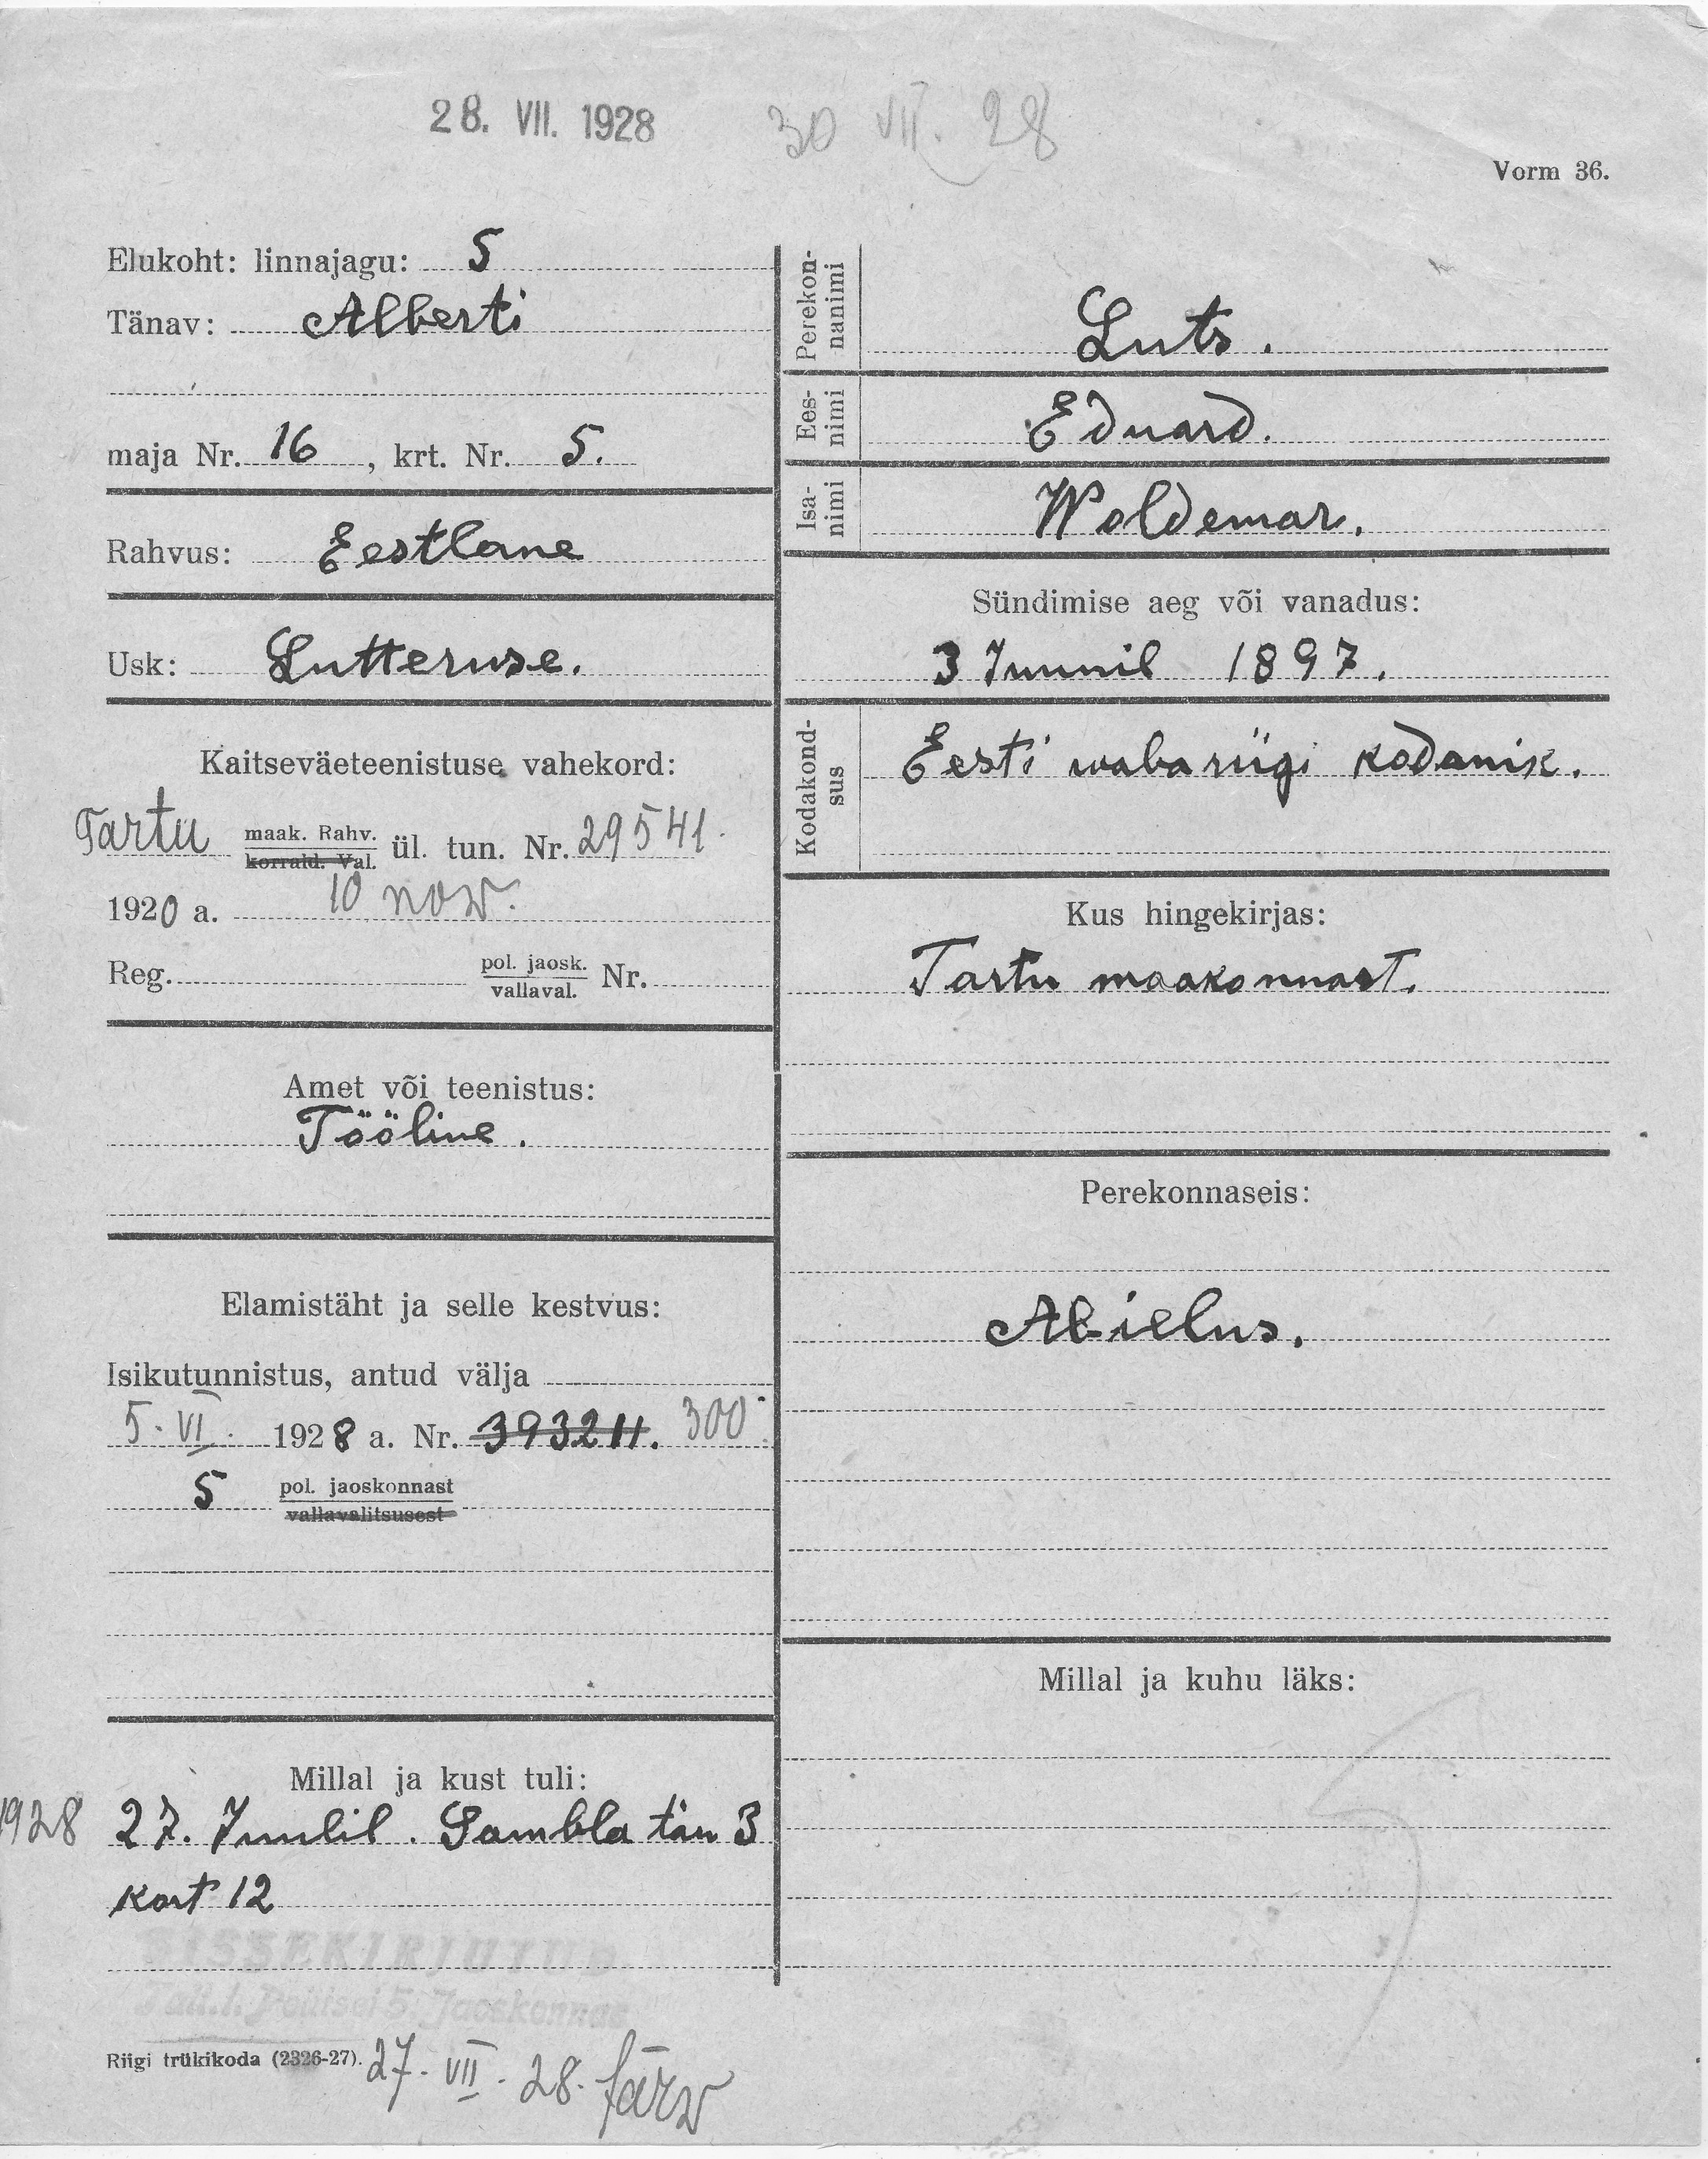 28. VII. 1928
30 VII. 28
Vorm 36.
Elukoht: linnajagu: 5
Tänav: Alberti
maja Nr. 16, krt. Nr. 5.
Rahvus: Eestlane
Usk: Lutteruse.
Kaitseväeteenistuse vahekord:
Tartu maak. Rahv. korrald. Val. ül. tun. Nr. 29541.
1920 a. 10 nov.
Reg. pol. jaosk. vallaval. Nr.
Amet või teenistus:
Tööline.
Elamistäht ja selle kestvus:
Isikutunnistus, antud välja
5. VI. 1928 a. Nr. 393211. 300
5 pol. jaoskonnast
vallavalitsusest
Millal ja kust tuli:
1928 27. Juulil. Sambla tän 3
kort 12
SISSEKIRJUTUD
Tall. l. Politsei 5. Jaoskonnas
Riigi trükikoda (2326-27). 27. VII. 28. Järw
Perekon-
nanimi
Luts.
Ees-
nimi
Eduard.
Isa-
nimi
Woldemar.
Sündimise aeg või vanadus:
3 Juunil 1897.
Kodakond-
sus
Eesti wabariigi kodanik.
Kus hingekirjas:
Tartu maakonnast.
Perekonnaseis:
Abielus.
Millal ja kuhu läks: